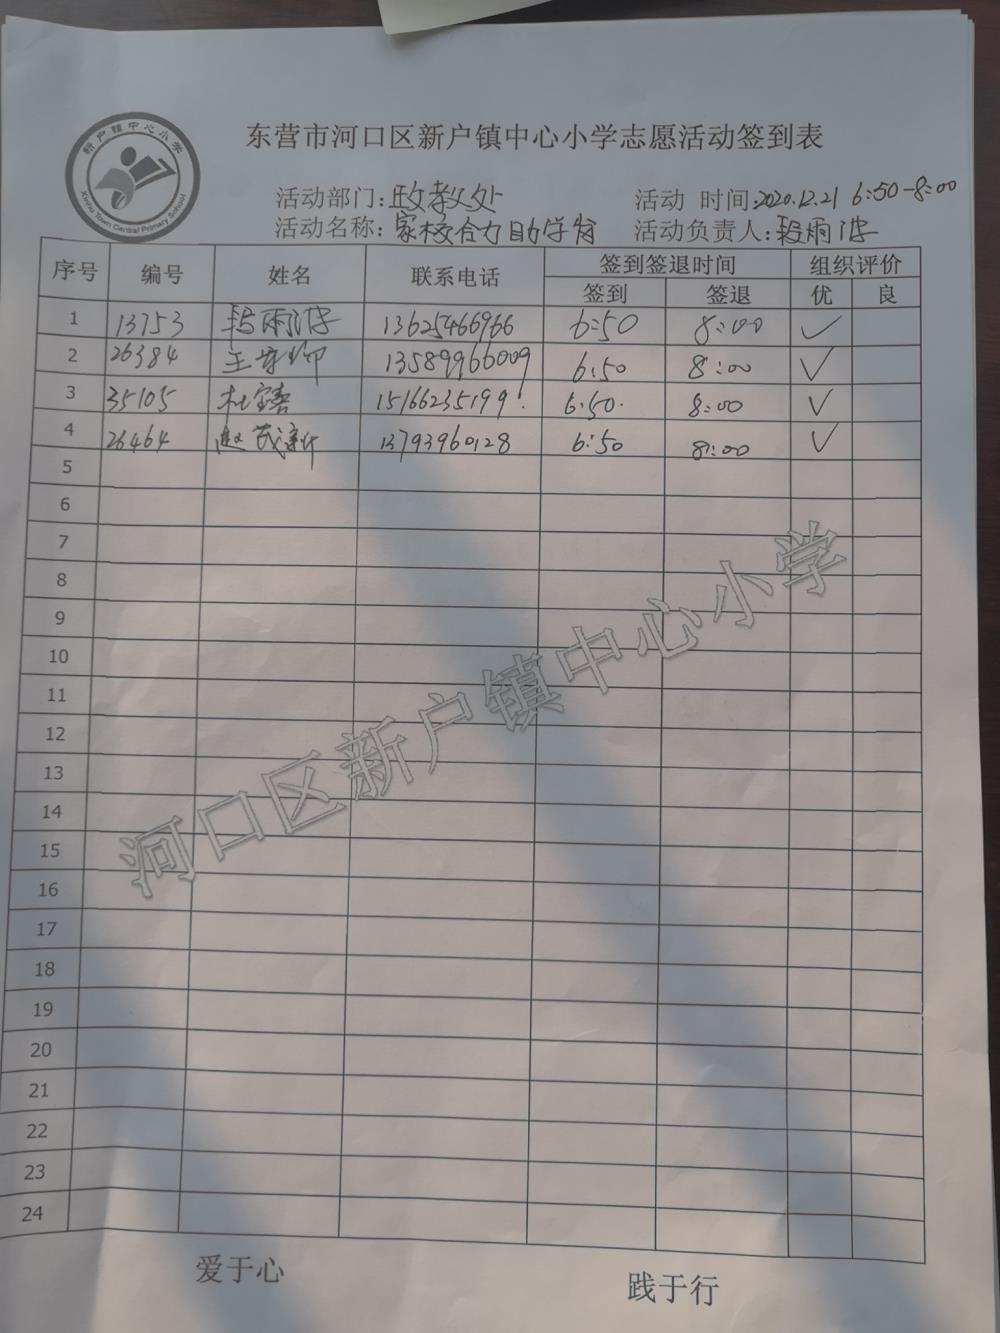 新户镇中心小学
Xinhu Town Central Primary School
东营市河口区新户镇中心小学志愿活动签到表
活动部门:政教处 活动 时间:2020.12.21 6:50-8:00
活动名称:家校合力助学育 活动负责人:段雨
序号 编号 姓名 联系电话 签到签退时间 组织评价
签到 签退 优 良
1 13753 段雨 13625466966 6:50 8:00 ✓
2 26384 王 13589966009 6:50 8:00 ✓
3 35105 杜 15166235199 6:50 8:00 ✓
4 26464 赵茂新 13793960128 6:50 8:00 ✓
5
6
7
8
9
10
11
12
13
14
15
16
17
18
19
20
21
22
23
24
河口区新户镇中心小学
爱于心 践于行